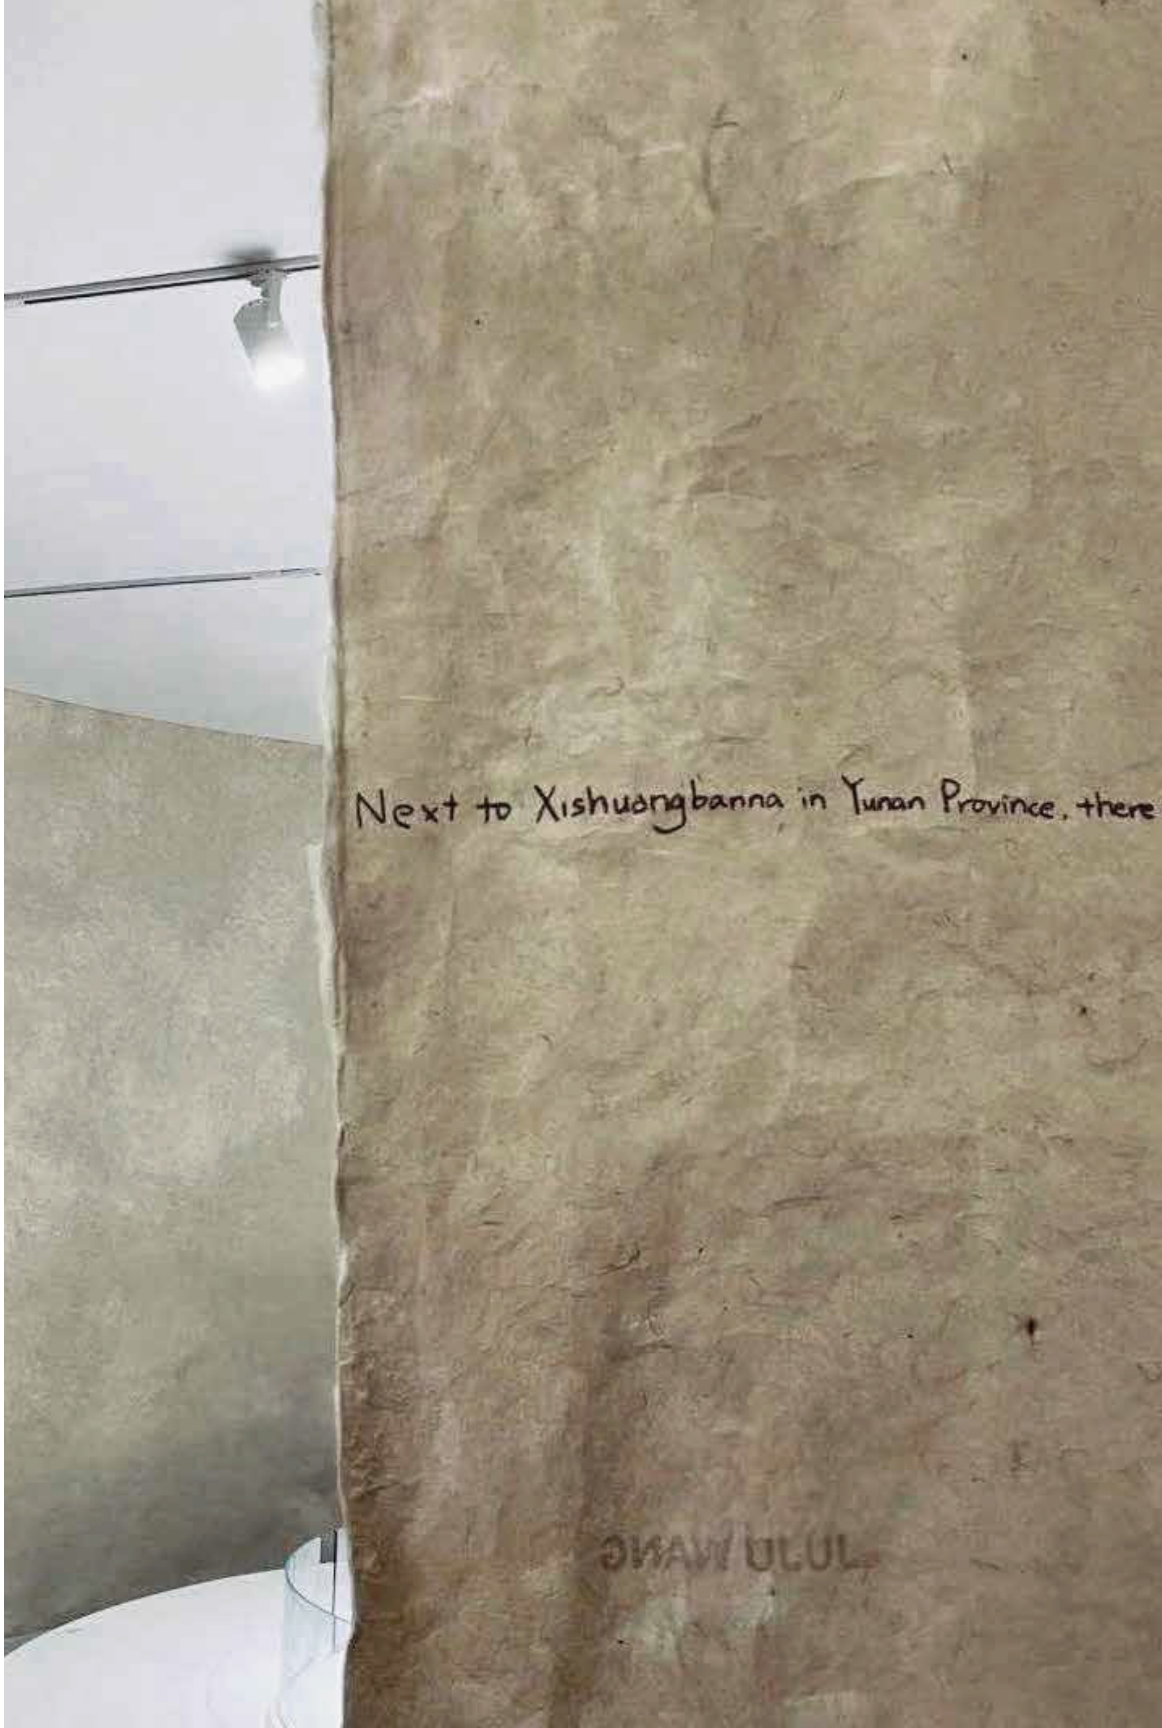 Next to Xishuangbanna in Yunan Province, there
JUJU WANG